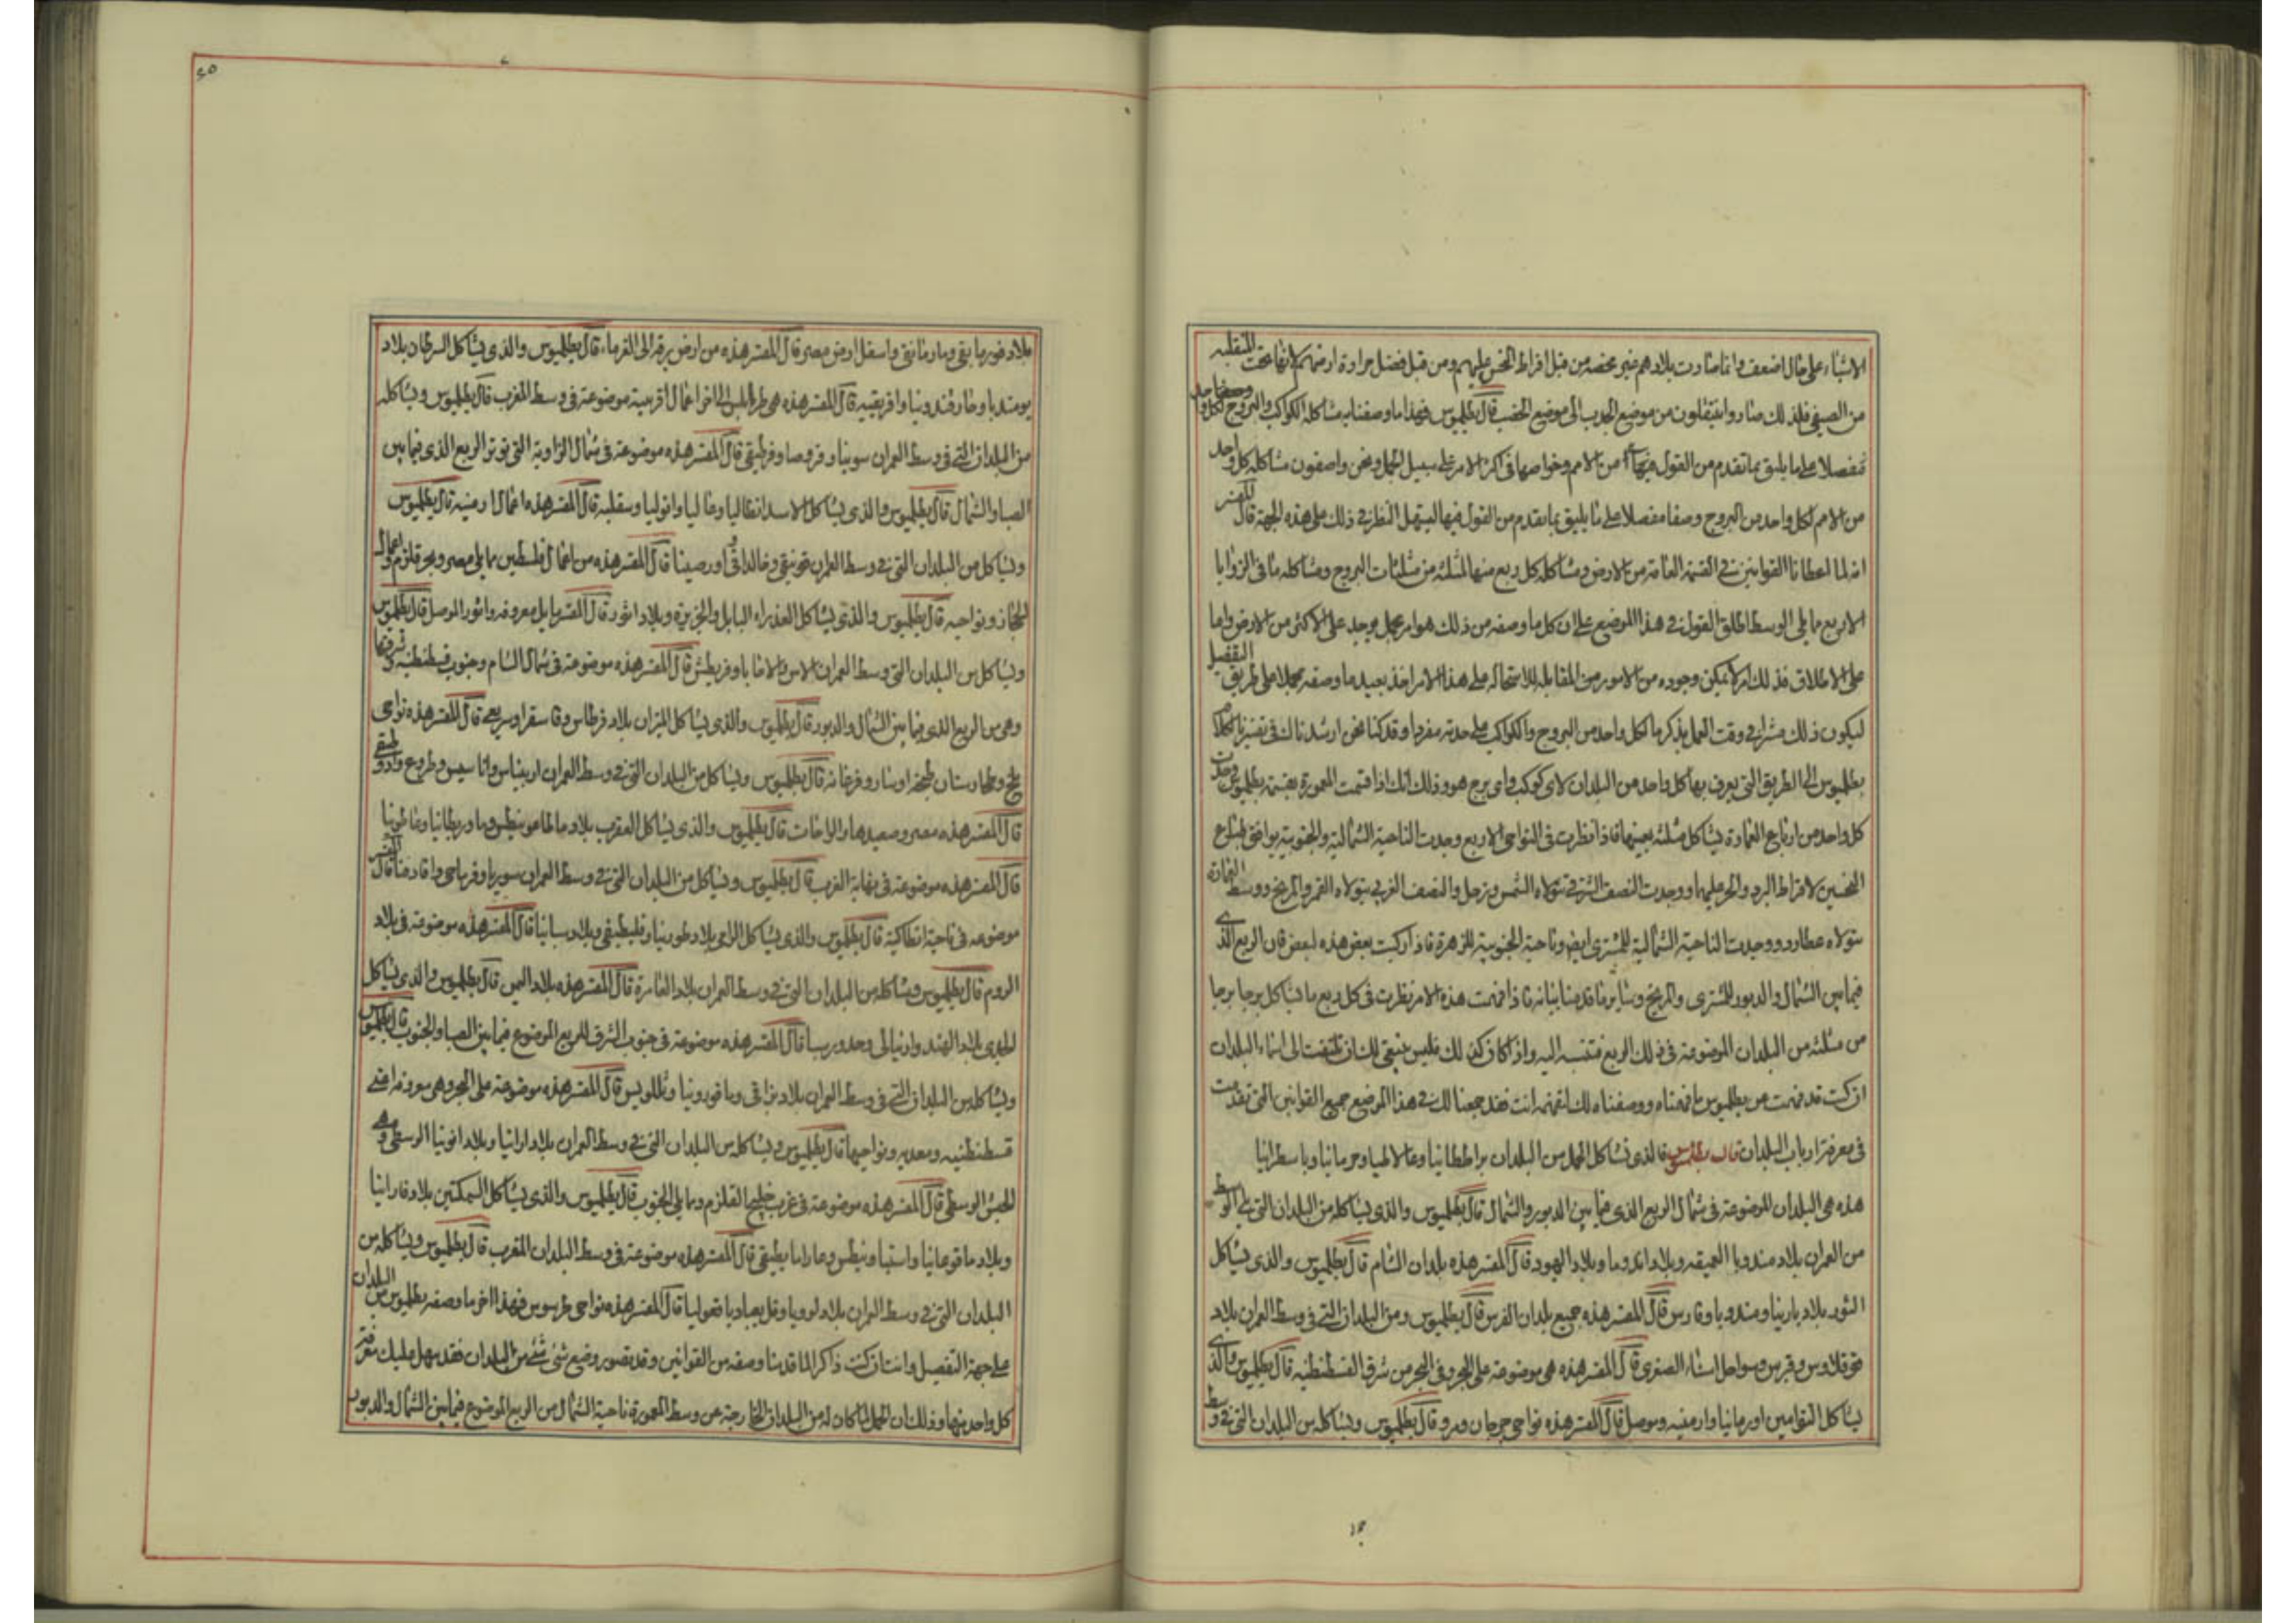 الاشياء على حال اضعف وانما صارت بلادهم غير مخصبه من قبل افراط النحس عليهم ومن قبل فضل حرارة ارضهم لانها تحت المنقلبه
من الصيفى فلذلك صاروا ينتقلون من موضع الجدب الى موضع الخصب قال بطلميوس فهذا ما وصفناه مشاكله الكواكب والبروج لكل واحد
مفصلا على ما يليق بما تقدم من القول فيها من الامم وخواصها فى اكثر الامر على سبيل الجمل ونحن واصفون مشاكله كل واحد
من الامم لكل واحد من البروج وصفا مفصلا على ما يليق بما تقدم من القول فيها ليسهل النظر فى ذلك على هذه الجهة قال المفسر
انه لما اعطانا القوانين فى القسمة العامة من الارض ومشاكلة كل ربع منها لمثلثه من مثلثات البروج ومشاكله ما فى الزوايا
الاربع مما يلى الوسط اطلق القول فى هذا الموضع على ان كل ما وصفه من ذلك هو امر مجمل يوجد على الاكثر من الارض واما
على الاطلاق فذلك امر لا يمكن وجوده من الامور من القابله للاستحاله على هذا الامر اخذ بعيد ما وصفه مجملا على طريق التفصيل
ليكون ذلك فى وقت العمل بذكر ما لكل واحد من البروج والكواكب على حدته مفردا وقد كنا نحن ارشدناك فى تفسيرنا كلام
بطلميوس الى الطريق التى يعرف بها كل واحد من البلدان لاى كوكب واى برج هو وذلك انك اذا قسمت المعمورة بقسمة بطلميوس وجدت
كل واحد من ارباع العمارة يشاكل مثلثه بعينها فاذا نظرت فى النواحى الاربع وجدت الناحية الشمالية والجنوبية يوافق طباع
النحسين لافراط البرد والحر عليهما ووجدت النصف الشرقى تتولاه الشمس وزحل والنصف الغربى يتولاه القمر والمريخ ووسط العمارة
تتولاه عطارد ووجدت الناحية الشمالية للمشترى ايضا وناحية الجنوبية للزهرة فاذا ركبت بعض هذه لبعض فان الربع الذى
فيما بين الشمال والدبور للمشترى والمريخ وسائر ما قدمنا بيانه فاذا فهمت هذه الامر نظرت فى كل ربع ما يشاكل برجا برجا
من مثلثه من البلدان الموضوعة فى ذلك الربع فتنسبه اليه واذا كان كذلك فليس ينبغى لك ان تلتفت الى اسماء البلدان
ان كنت قد فهمت عن بطلميوس ما فهمناه ووصفناه لك لتفهمه انت فقد جمعنا لك فى هذا الموضع جميع القوانين التى تقدمت
فى معرفة ارباب البلدان قال بطلميوس فالذى يشاكل الحمل من البلدان براططانيا وغالاطيا وجرمانيا وباسطرانيا
هذه هى البلدان الموضوعة فى شمال الربع الذى فيما بين الدبور والشمال قال بطلميوس والذى يشاكله من البلدان التى على الوسط
من العمران بلاد سوريا العميقه وبلاد اندوما وبلاد اليهود قال المفسر هذه بلدان الشام قال بطلميوس والذى يشاكل
الثور بلاد بارنيا ومندويا وفارس قال المفسر هذه جميع بلدان الفرس قال بطلميوس ومن البلدان التى فى وسط العمران بلاد
قوقلادس وقبرس وسواحل اسياء الصغرى قال المفسر هذه هى موضوعة على البحر وفى البحر من شرق القسطنطنيه قال بطلميوس والذى
يشاكل التوامين اورمانيا وارمنيه وموصل قال المفسر هذه نواحى جرجان ومرو قال بطلميوس ويشاكله من البلدان التى فى وسط
٢٥
بلاد قوريانيقى ومارمانيقى واسفل ارض مصر قال المفسر هذه من ارض برقه الى الفرما قال بطلميوس والذى يشاكل السرطان بلاد
نومنديا وخارقندونيا وافريقيه قال المفسر هذه هى طرابلس الى اخر اعمال افريقية موضوعة فى وسط المغرب قال بطلميوس ويشاكله
من البلدان التى فى وسط العمران سوينيا وفروصا وفرطيقى قال المفسر هذه موضوعة فى شمال الزاوية التى توتر الربع الذى فيما بين
الصبا والشمال قال بطلميوس والذى يشاكل الاسد انطاليا وغاليا وانوليا وسقليه قال المفسر هذه اعمال ارمنيه قال بطلميوس
ويشاكل من البلدان التى فى وسط العمران فونيقى وخالداقى واورصينا قال المفسر هذه من اعمال فلسطين مما يلى مصر وبحر قلزم واعمال
الحجاز ونواحيه قال بطلميوس والذى يشاكل العذراء البابل والجزيرة وبلاد اثور قال المفسر بابل معروفه واثور الموصل قال بطلميوس
ويشاكل من البلدان التى وسط العمران الاس والاخايا وقريطش قال المفسر هذه موضوعة فى شمال الشام وجنوب قسطنطنيه وشرقها
وهى من الربع الذى فيما بين الشمال والدبور قال بطلميوس والذى يشاكل الميزان بلاد فرطاس وقاسفرا وسريعى قال المفسر هذه نواحى
بلخ وطخارستان وفرغانه قال بطلميوس ويشاكل من البلدان التى فى وسط العمران اربيناس واناسيس وطروغ وادوطيقى
قال المفسر هذه مصر وصعيدها والواحات قال بطلميوس والذى يشاكل العقرب بلاد ماطاغونيطس وماوريطانيا وغاطونيا
قال المفسر هذه موضوعة فى نهاية الغرب قال بطلميوس ويشاكل من البلدان التى فى وسط العمران سوريا وقرماحى وقادقنا قال المفسر
موضوعه فى ناحية انطاكية قال بطلميوس والذى يشاكل الرامى بلاد طورنيا وقليطيقى وبلاد سبانيا قال المفسر هذه موضوعة فى بلاد
الروم قال بطلميوس ويشاكله من البلدان التى فى وسط العمران بلاد العامرة قال المفسر هذه بلاد اليمن قال بطلميوس والذى يشاكل
الجدى بلاد الهند وارنيالى وحدورسيا قال المفسر هذه موضوعة فى جنوب الشرق للربع الموضوع فيما بين الصبا والجنوب قال بطلميوس
ويشاكله من البلدان التى فى وسط العمران بلاد ثراقى وماقدونيا وثللويس قال المفسر هذه موضوعة على البحر وهى معروفة اعنى
قسطنطنيه ومعديه ونواحيها قال بطلميوس ويشاكله من البلدان التى فى وسط العمران بلاد ارانيا وبلاد افونيا الوسطى وهى
الحبش الوسطى قال المفسر هذه موضوعة فى غرب خليج القلزم ومما يلى الجنوب قال بطلميوس والذى يشاكل السمكتين بلاد فارانيا
وبلاد ماقوعانيا واستيا ونيطس وعاراما يطيقى قال المفسر هذه موضوعة فى وسط البلدان المغرب قال بطلميوس ويشاكله من
البلدان التى فى وسط العمران بلاد لوديا وقليصاد يا قعوليا قال المفسر هذه نواحى طرسوس فهذا اخر ما وصفه بطلميوس من البلدان
على جهة التفصيل وانت ان كنت ذاكرا لما قدمنا وصفه من القوانين وقد تصور وضع شئ شئ من البلدان فقد سهل عليك معرفة
كل واحد منها وذلك ان الحمل لما كان له من البلدان الخارجة عن وسط المعمورة ناحية الشمال من الربع الموضوع فيما بين الشمال والدبور